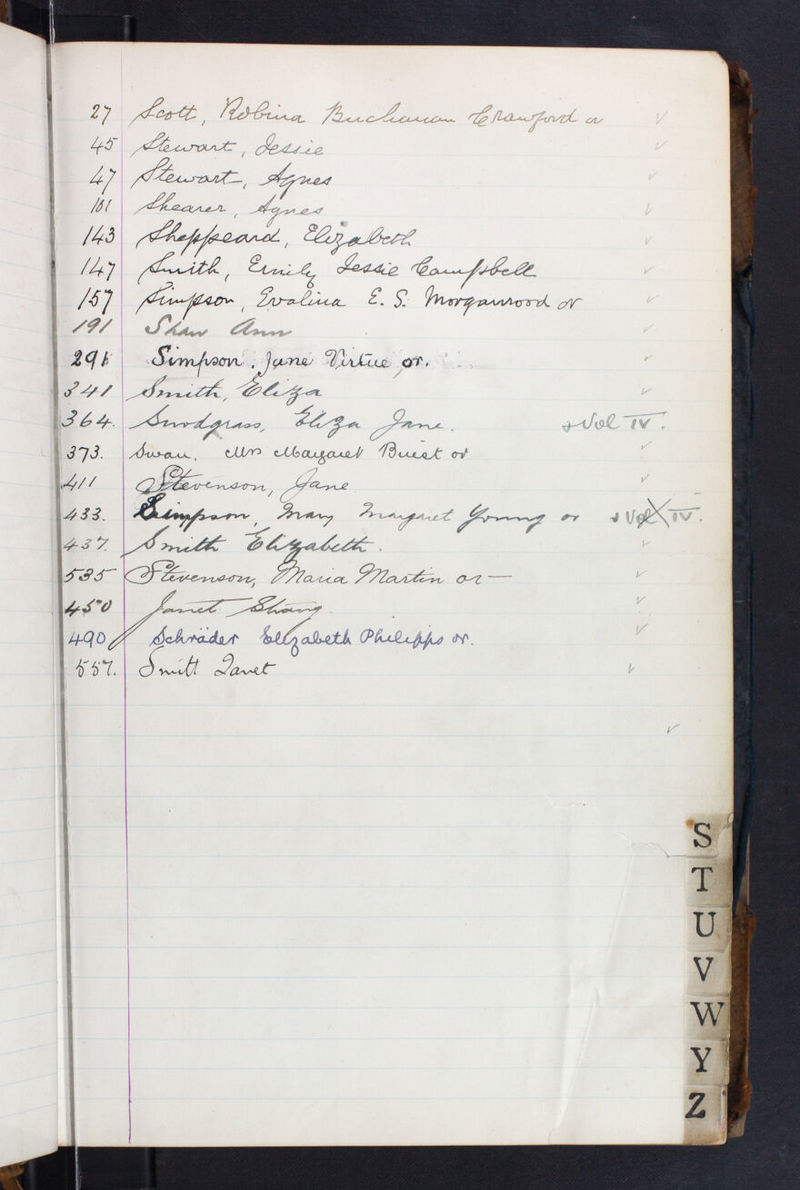 27 Scott, Robina Buchanan Crawford or ✓
45 Stewart, Jessie ✓
47 Stewart, Agnes ✓
101 Shearer, Agnes ✓
143 Sheppeard, Elizabeth ✓
147 Smith, Emily Jessie Campbell ✓
157 Simpson, Evalina E. S. Morganrood or ✓
191 Shaw Ann ✓
291 Simpson. Jane Virtue or. ✓
341 Smith, Eliza ✓
364. Snodgrass, Eliza Jane. & Vol IV.
373. Swan, Mrs Margaret Buist or ✓
411 Stevenson, Jane ✓
433. Simpson, Mary Margaret Young or & Vol IV.
437. Smith Elizabeth. ✓
535 Stevenson, Maria Martin or — ✓
450 Janet Strang ✓
490 Schräder Elizabeth Philipps or. ✓
557. Smitt Janet ✓
✓
S
T
U
V
W
Y
Z